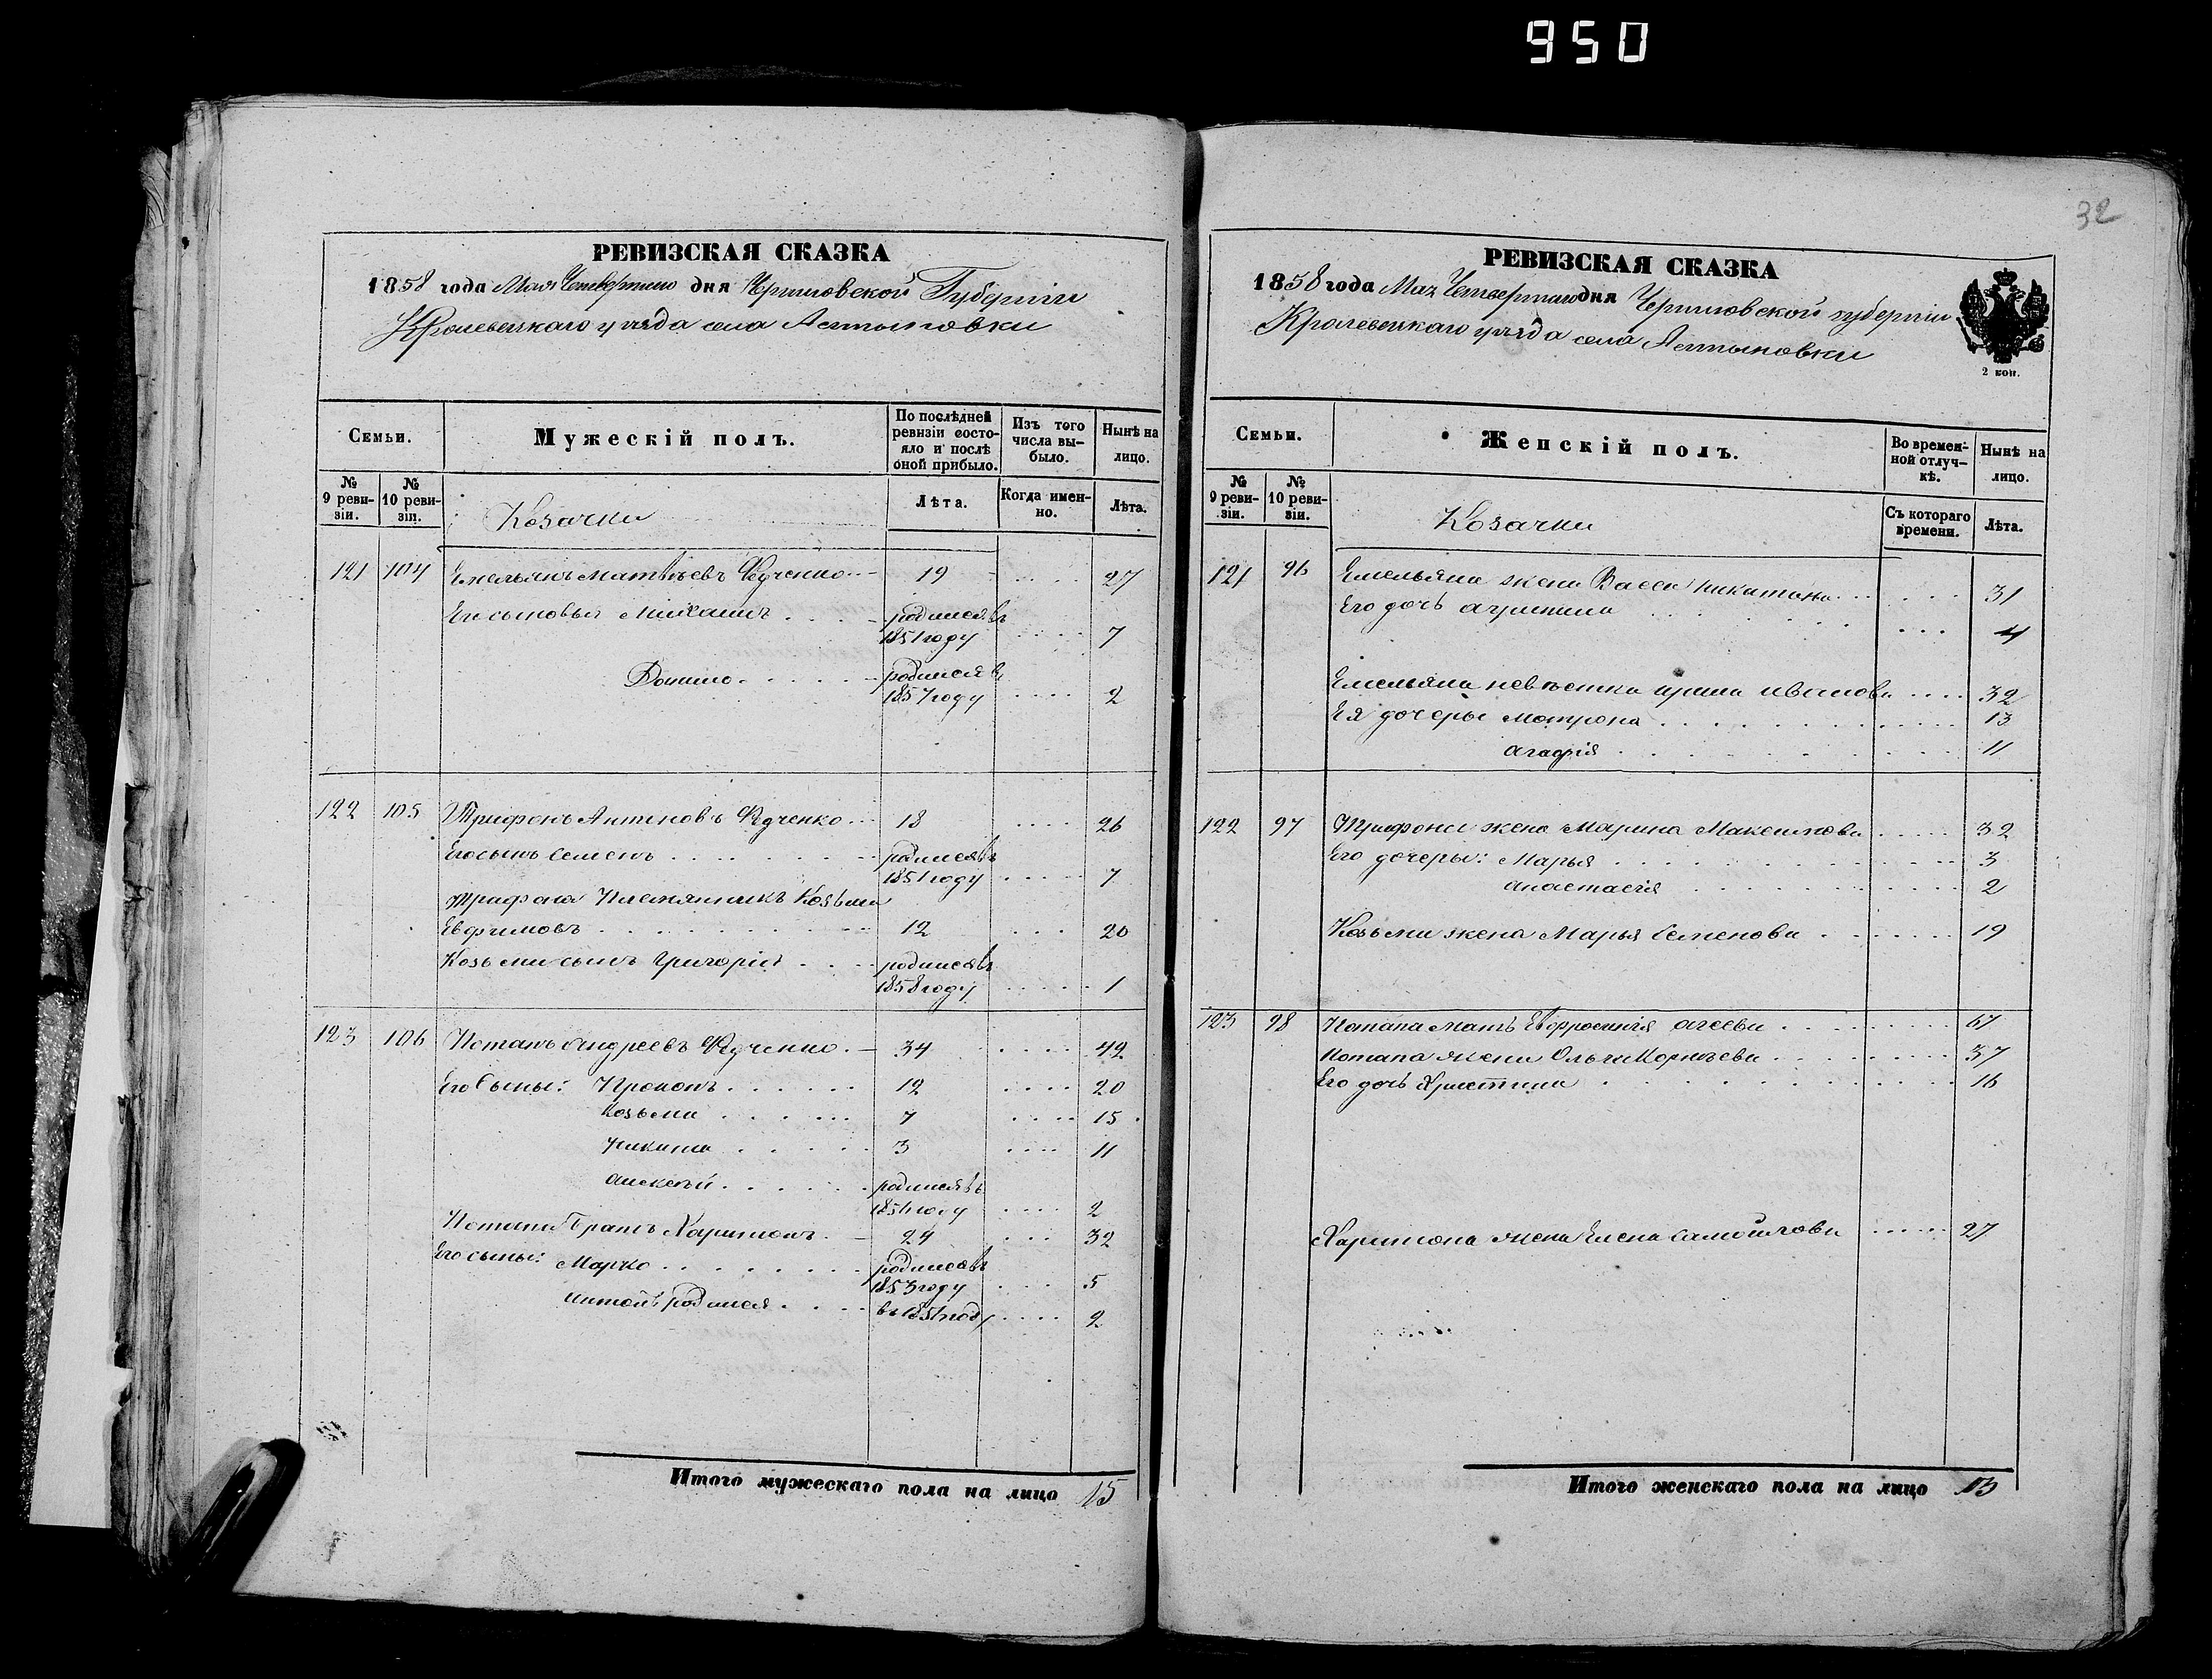 950
32
РЕВИЗСКАЯ СКАЗКА
1858 года Мая Четвертого дня Черниговской Губернии
Кролевецкаго уезда села
Семьи.
Мужескій полъ.
По послѣдней ревизіи состояло и послѣ оной прибыло.
Изъ того числа выбыло.
Нынѣ на лицо.
№ 9 ревизіи.
№ 10 ревизіи.
Козачки
Лѣта.
Когда именно.
Лѣта.
121 104 Емельянъ Матвѣевъ Федченко 19 27
Его сыновья Михаилъ родился въ 1851 году 7
Данило родился въ 1857 году 2
122 105 Трифонъ Антиповъ Федченко 18 26
Его сынъ Семенъ родился въ 1851 году 7
Трифона Племянникъ Козьма
Евфимовъ 12 20
Козьмы сынъ Григорій родился въ 1858 году 1
123 106 Потапъ Андреевъ Федченко 34 42
Его Сыны: Прокопъ 12 20
Козьма 7 15
Никита 3 11
Алексѣй родился въ 1857 году 2
Потапа Братъ Харитонъ 24 32
Его сыны: Марко родился въ 1853 году 5
Антонъ родился въ 1857 году 2
Итого мужескаго пола на лицо 15
РЕВИЗСКАЯ СКАЗКА
1858 года Мая Четвертаго дня Черниговской губерніи
Кролевецкаго уѣзда села
2 коп.
Семьи.
Женскій полъ.
Во временной отлучкѣ.
Нынѣ на лицо.
№ 9 ревизіи.
№ 10 ревизіи.
Козачки
Съ котораго времени.
Лѣта.
121 96 Емельяна жена Васса Никитова 31
Его дочь агрипина 4
Емельяна невѣстка ирина иванова 32
Ея дочеры Мотрона 13
агафія 11
122 97 Трифона жена Марина Максимова 32
Его дочеры: Марья 3
анастасія 2
Козьмы жена Марья Семенова 19
123 98 Потапа мать Евфросинія агеева 67
Потапа жена Ольга Корнѣева 37
Его дочь Христина 16
Харитона жена Елена Самойлова 27
Итого женскаго пола на лицо 13